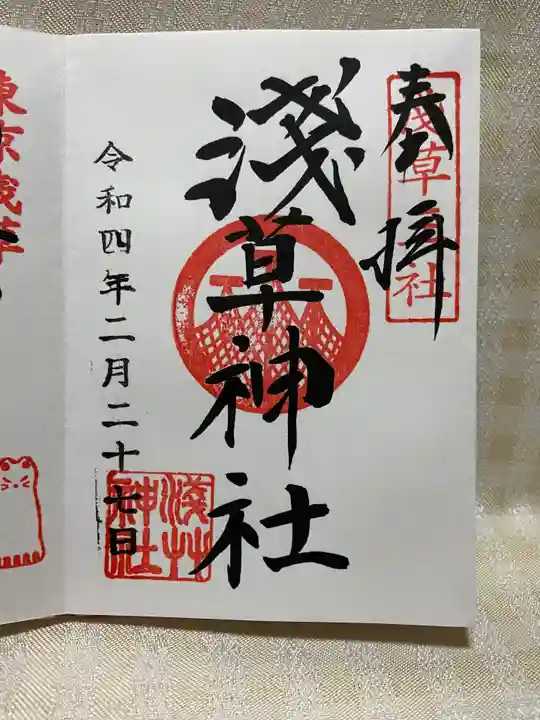 奉拝
浅草社
淺草神社
令和四年二月二十七日
淺艸
神社
東京浅草